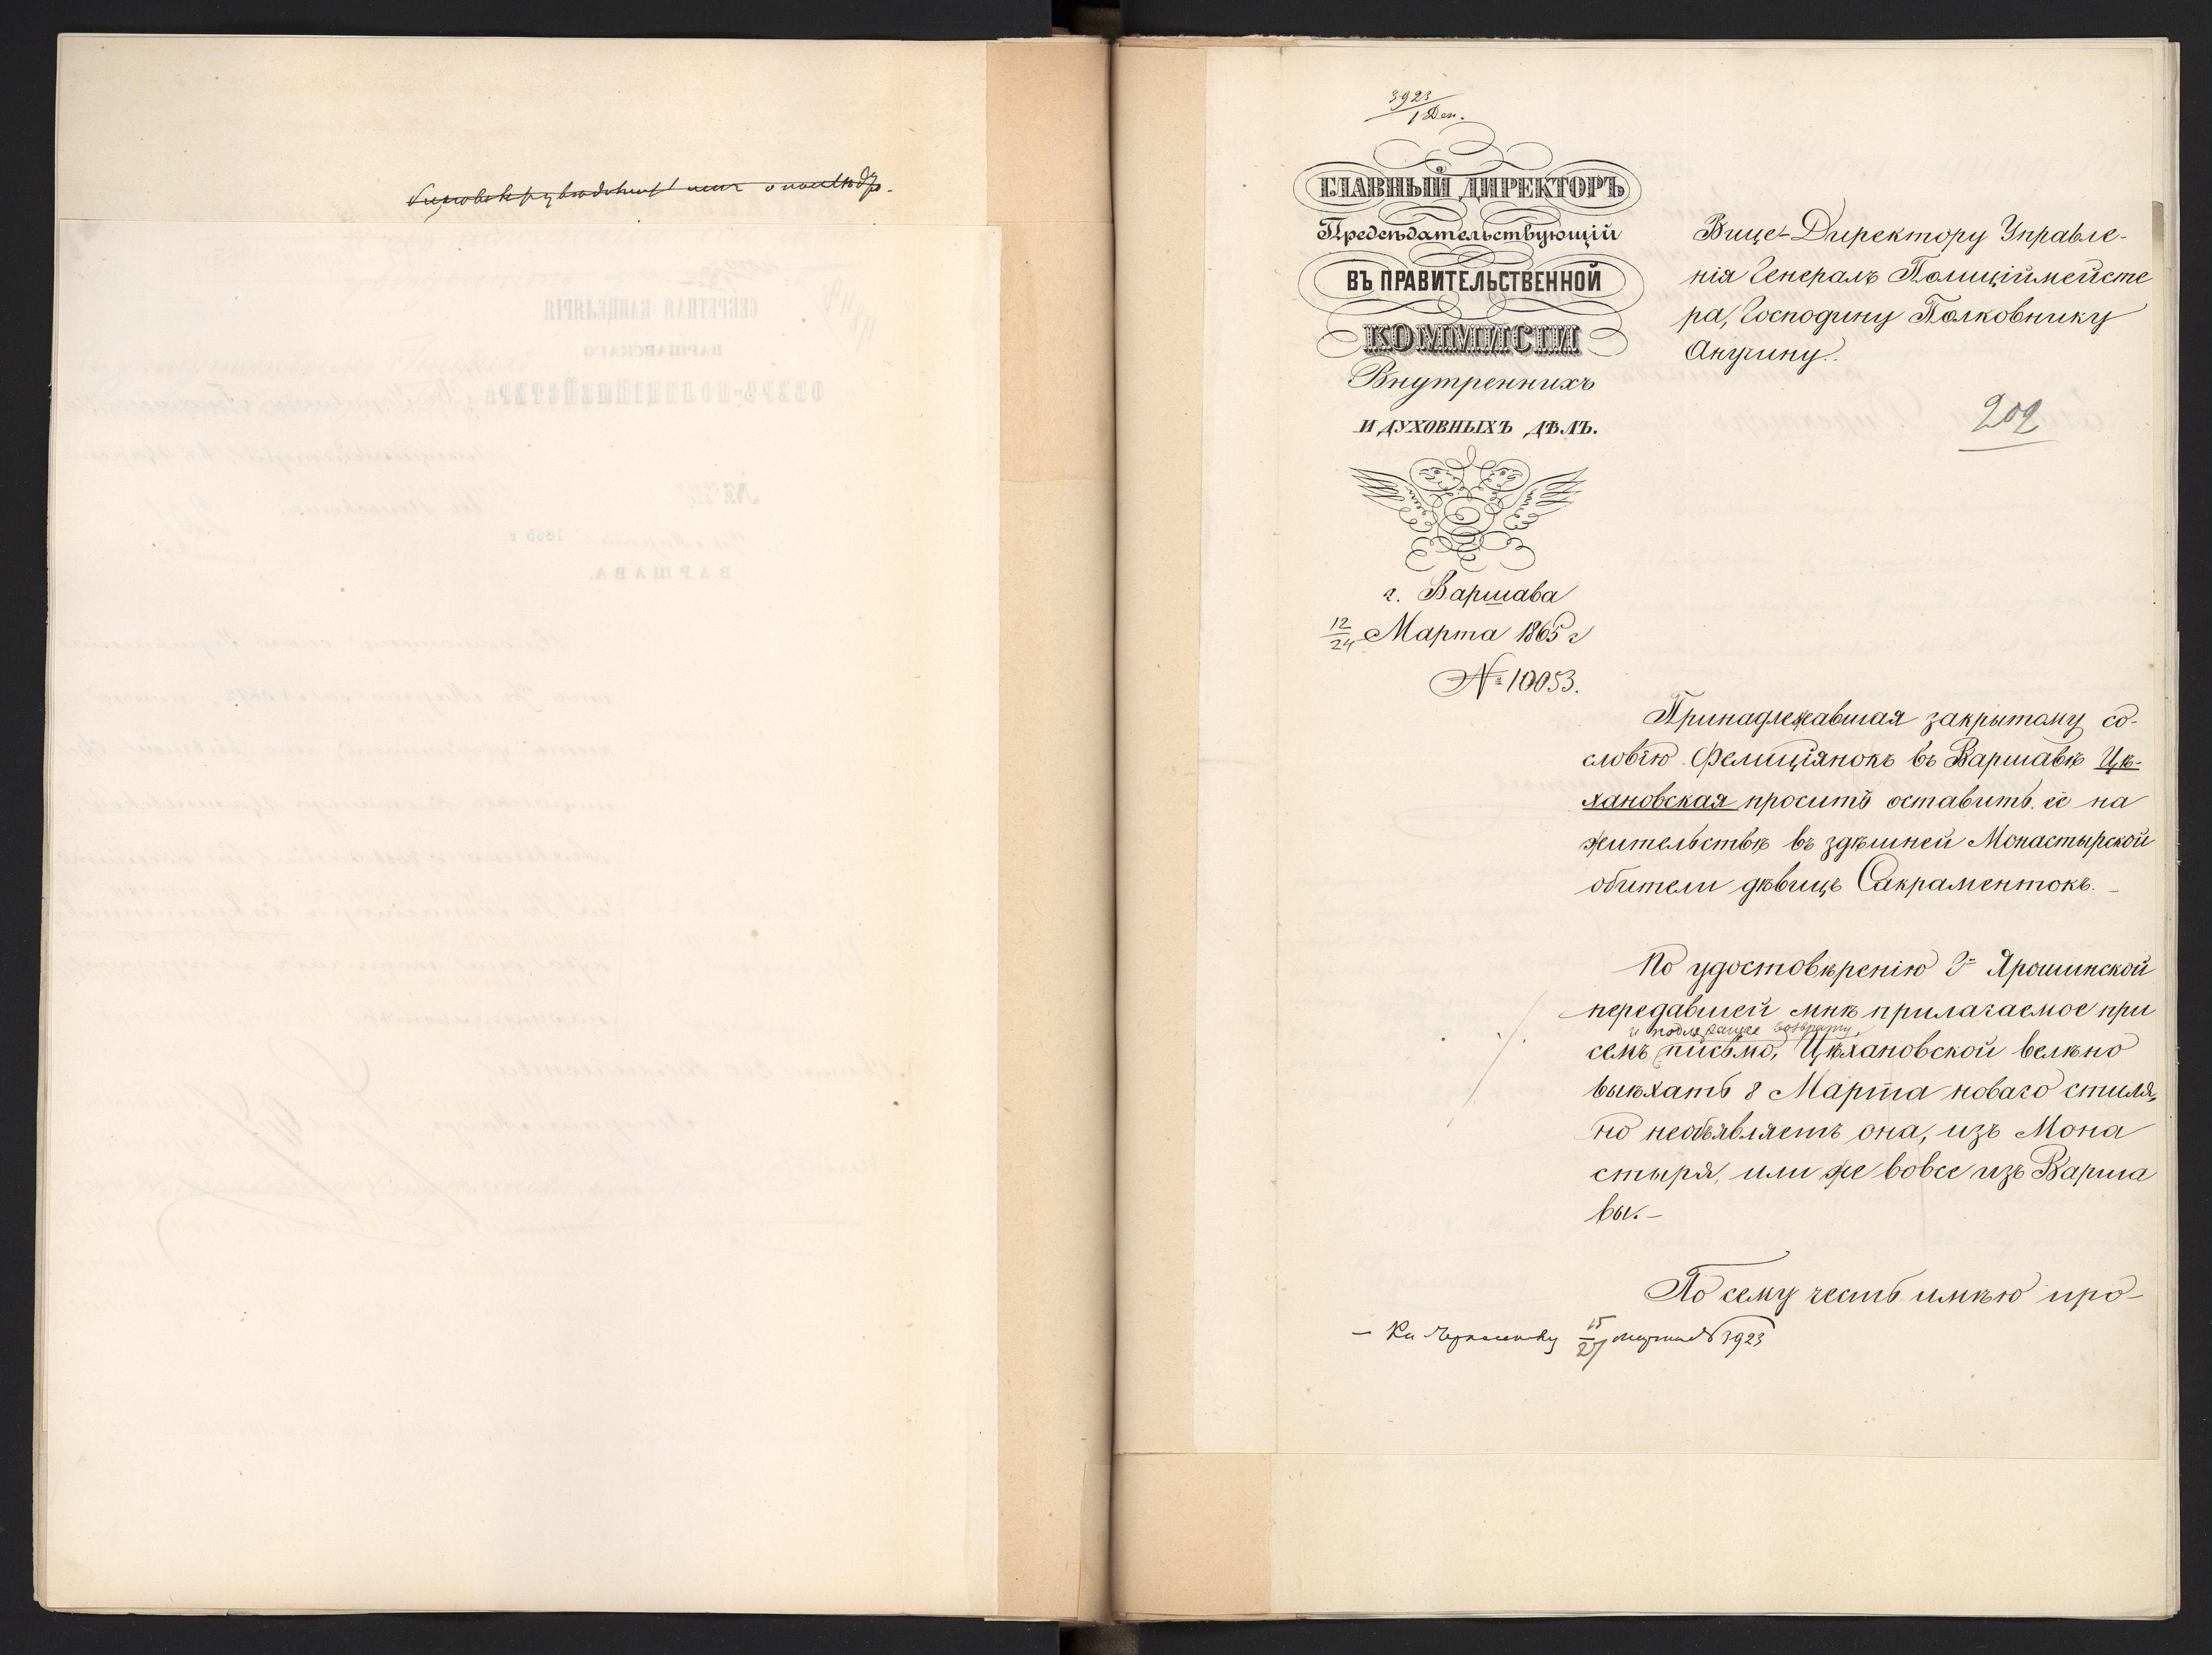 3923
1 Деп.
ГЛАВНЫЙ ДИРЕКТОРЪ
Предсѣдательствующій
ВЪ ПРАВИТЕЛЬСТВЕННОЙ
КОММИСІИ
Внутреннихъ
И ДУХОВНЫХЪ ДѢЛЪ.
г. Варшава
12/24 Марта 1865 г
№ 10053.
Вице-Директору Управле-
нія Генералъ Полиціймейсте
ра, Господину Полковнику
Анучину.
202
Принадлежавшая закрытому со-
словію Фелиціянокъ въ Варшавѣ Цѣ-
хановская проситъ оставить ее на
жительствѣ въ здѣшней Монастырской
обители дѣвицъ Сакраментокъ.
По удостовѣренію Г-ⁱ Ярошинской
передавшей мнѣ прилагаемое при
и подлежащее возврату
семъ письмо, Цѣхановской велѣно
выѣхать 8 Марта новаго стиля,
но необъявляетъ она, изъ Мона
стыря, или же вовсе изъ Варша
вы.
По сему честь имѣю про-
15/27 марта № 3923